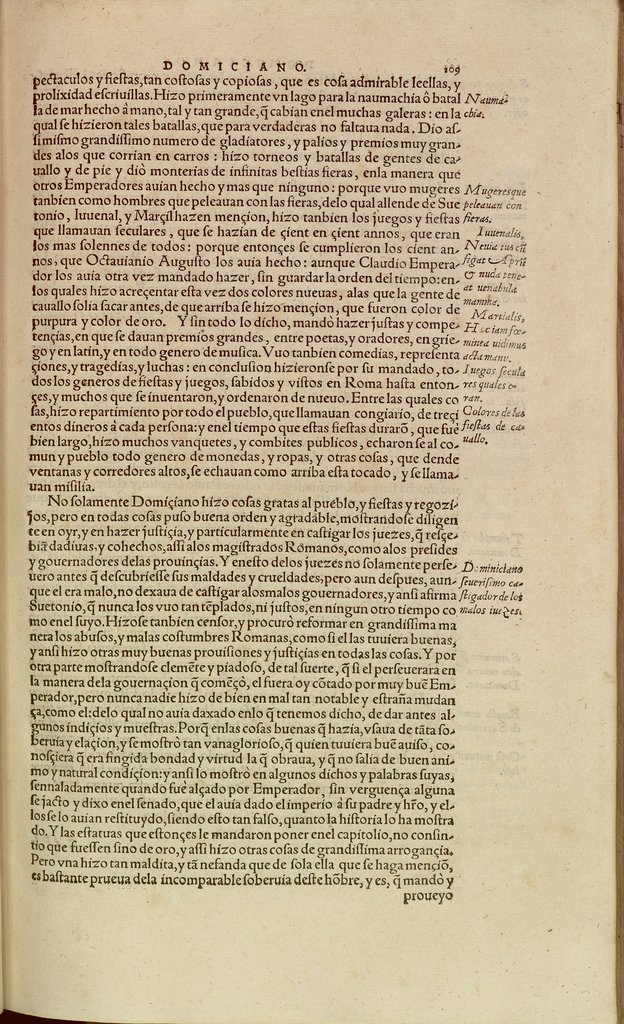 DOMICIANO.
109
pectaculos y fiestas, tan costosas y copiosas, que es cosa admirable leellas, y
prolixidad escriuillas. Hizo primeramente vn lago para la naumachia ô batal
la de mar hecho â mano, tal y tan grande, q̃ cabían enel muchas galeras: en la
qual se hizieron tales batallas, que para verdaderas no faltaua nada. Dío as-
símismo grandíssimo numero de gladíatores, y palíos y premíos muy gran-
des alos que corrían en carros: hizo torneos y batallas de gentes de ca-
uallo y de píe y dió monterías de infinitas bestías fieras, enla manera que
otros Emperadores auían hecho y mas que ninguno: porque vuo mugeres
tanbíen como hombres que peleauan con las fieras, delo qual allende de Sue
tonío, Iuuenal, y Marçíl hazen mençíon, hízo tanbíen los juegos y fiestas
que llamauan seculares, que se hazían de çíent en çíent annos, que eran
los mas solennes de todos: porque entonçes se cumplíeron los cíent an-
nos, que Octauíanío Augusto los auía hecho: aunque Claudío Empera-
dor los auía otra vez mandado hazer, sin guardar la orden del tíempo: en-
los quales hízo acreçentar esta vez dos colores nueuas, alas que la gente de
cauallo solía sacar antes, de que arriba se hizo mençíon, que fueron color de
purpura y color de oro. Y sin todo lo dícho, mandò hazer justas y compe-
tençías, en que se dauan premíos grandes, entre poetas, y oradores, en gríe-
go y en latín, y en todo genero de musica. Vuo tanbíen comedías, representa
çíones, y tragedías, y luchas: en conclusíon hizíeronse por su mandado, to-
dos los generos de fiestas y juegos, sabidos y vístos en Roma hasta enton-
çes, y muchos que se inuentaron, y ordenaron de nueuo. Entre las quales co
sas, hízo repartimíento por todo el pueblo, que llamauan congíarío, de treçí
entos díneros â cada persona: y enel tíempo que estas fiestas durarõ, que fuê
bíen largo, hízo muchos vanquetes, y combítes publicos, echaron se al co-
mun y pueblo todo genero de monedas, y ropas, y otras cosas, que dende
ventanas y corredores altos, se echauan como arríba esta tocado, y se llama-
uan misilia.
No solamente Domíçíano hízo cosas gratas al pueblo, y fiestas y regozi-
jos, pero en todas cosas puso buena orden y agradable, mostrandose dílígen
te en oyr, y en hazer justíçía, y particularmente en castígar los juezes, q̃ resçe-
bíã dadíuas, y cohechos, assí alos magístrados Romanos, como alos presídes
y gouernadores delas prouinçías. Y enesto delos juezes no solamente perse-
uero antes q̃ descubriesse sus maldades y crueldades, pero aun despues, aun-
que el era malo, no dexaua de castigar alos malos gouernadores, y ansi afirma
Suetonío, q̃ nunca los vuo tan tẽplados, ní justos, en níngun otro tíempo co
mo enel suyo. Hízose tanbíen censor, y procurò reformar en grandíssima ma
nera los abusos, y malas costumbres Romanas, como si el las tuuíera buenas,
y ansi hizo otras muy buenas prouísiones y justíçías en todas las cosas. Y por
otra parte mostrandose clemẽte y píadoso, de tal suerte, q̃ si el perseuerara en
la manera dela gouernaçíon q̃ començò, el fuera oy cõtado por muy buẽ Em-
perador, pero nunca nadíe hízo de bíen en mal tan notable y estraña mudan
ça, como el: delo qual no auía daxado enlo q̃ tenemos dicho, de dar antes al-
gunos indíçíos y muestras. Porq̃ enlas cosas buenas q̃ hazía, vsaua de tãta so-
beruía y elaçíon, y se mostrò tan vanaglorioso, q̃ quíen tuuíera buẽ auíso, co-
nosçíera q̃ era fingída bondad y vírtud la q̃ obraua, y q̃ no salía de buen ani-
mo y natural condíçíon: y ansi lo mostrò en algunos díchos y palabras suyas,
sennaladamente quando fuê alçado por Emperador, sin verguença alguna
se jacto y díxo enel senado, que el auía dado el imperío â su padre y hr̃o, y el-
los se lo auían restituydo, síendo esto tan falso, quanto la historía lo ha mostra
do. Y las estatuas que estonçes le mandaron poner enel capitolío, no consin-
tío que fuessen sino de oro, y assí hízo otras cosas de grandíssima arrogançía.
Pero vna hízo tan maldita, y tã nefanda que de sola ella que se haga mençíõ,
es bastante prueua dela incomparable soberuía deste hõbre, y es, q̃ mandò y
proueyo
Nauma-
chia.
Mugeres que
peleauan con
fieras.
Iuuenalis,
Neuia tuscũ
figat Aprũ
& nuda tene-
at uenabula
mamma.
Martialis,
Hac iam foe-
minea uidimus
acta manu.
Iuegos secula
res quales e-
ran.
Colores de las
fiestas de ca-
uallo.
Dominiciano
seuerissimo ca-
stigador de los
malos iueçes.